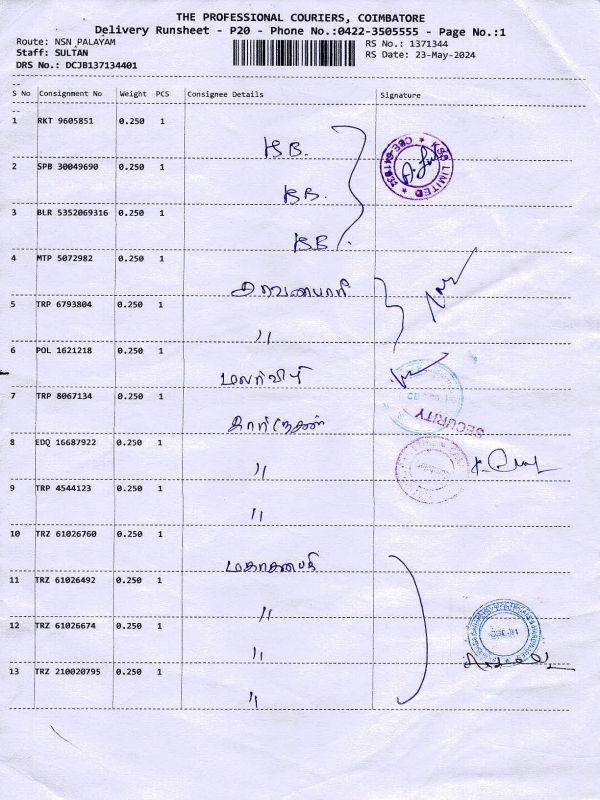 THE PROFESSIONAL COURIERS, COIMBATORE
Delivery Runsheet - P20 - Phone No.:0422-3505555 - Page No.:1
Route: NSN PALAYAM
RS No.: 1371344
Staff: SULTAN
RS Date: 23-May-2024
DRS No.: DCJB137134401
S No Consignment No Weight PCS Consignee Details Signature
1 RKT 9605851 0.250 1
2 SPB 30049690 0.250 1
3 BLR 5352069316 0.250 1
4 MTP 5072982 0.250 1
5 TRP 6793804 0.250 1
〃
6 POL 1621218 0.250 1
மலர்விழி
7 TRP 8067134 0.250 1
SECURITY
8 EDQ 16687922 0.250 1
〃
9 TRP 4544123 0.250 1
〃
10 TRZ 61026760 0.250 1
மகாகணபதி
11 TRZ 61026492 0.250 1
〃
12 TRZ 61026674 0.250 1
〃
13 TRZ 210020795 0.250 1
〃